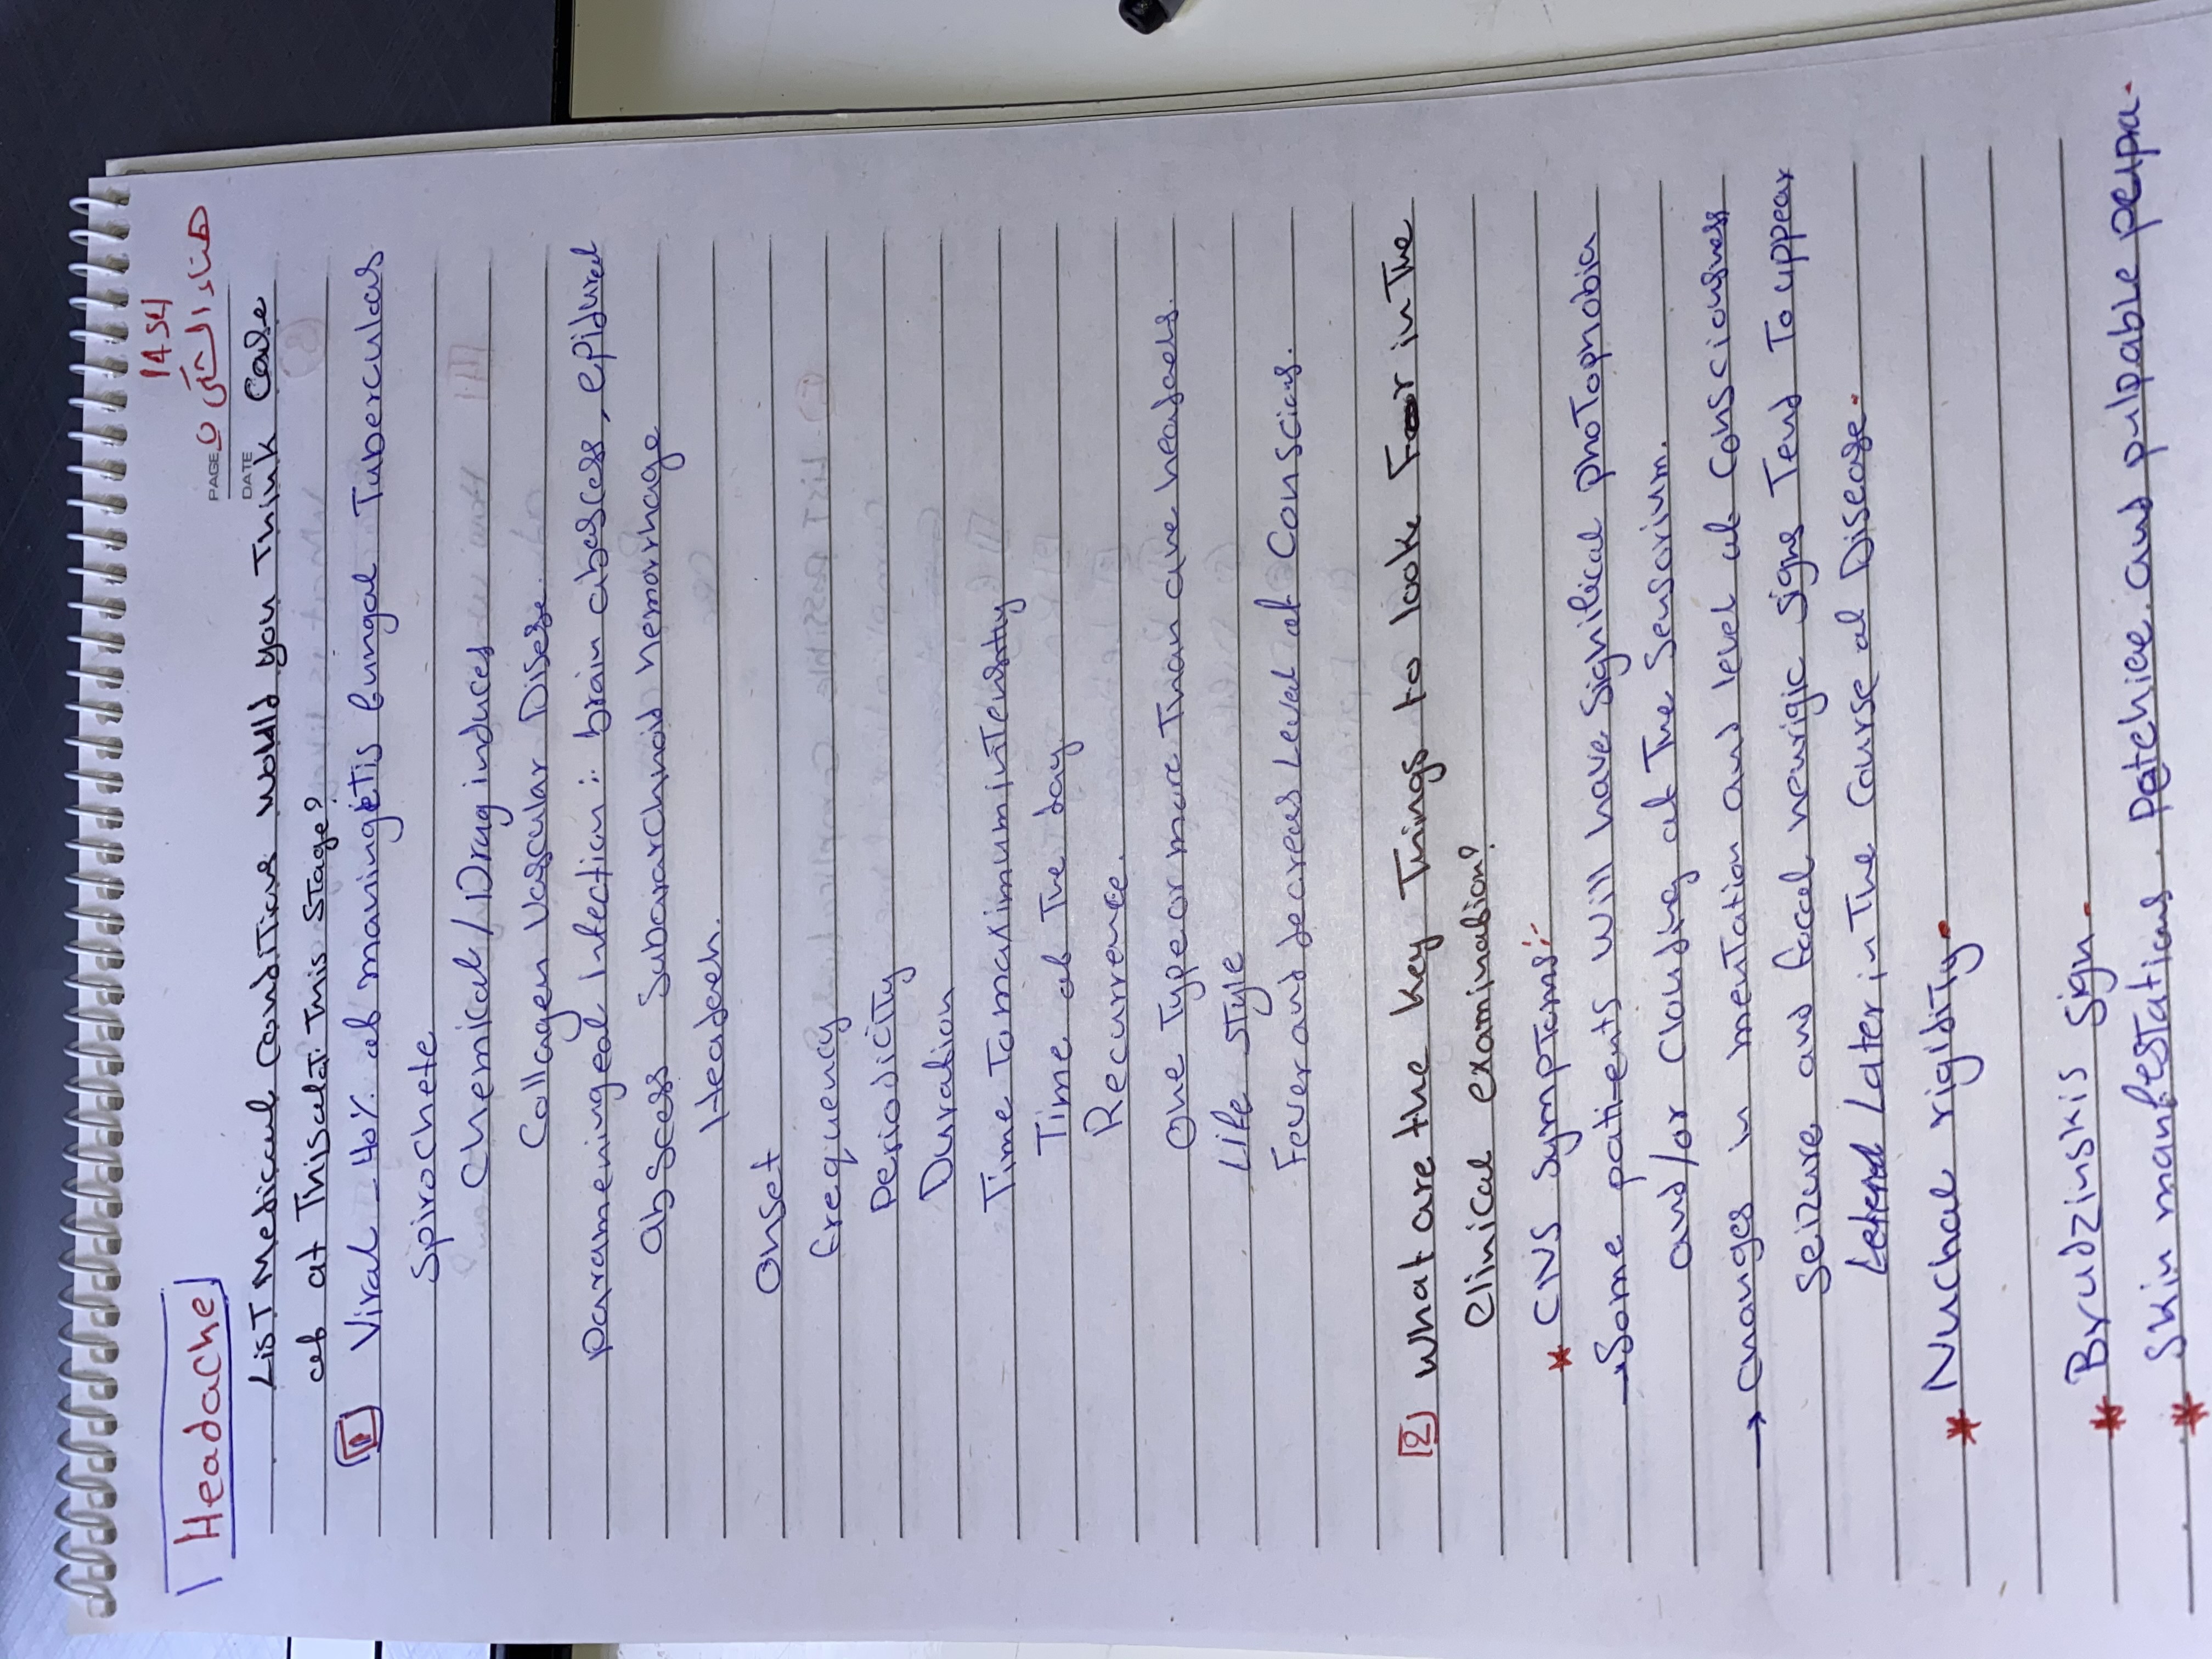 1454
PAGE
DATE
Headache
LisT Medical Conditions would you Think
of at This Stage?
1 Viral - 40% of maningetis fungal Tuberculas
Spirochete
Chemical / Drug induces
Collagen Vascular Disese.
parameningeal Infection :: brain abscess, epidural
abscess Subarachnoid hemorrhage
Headech.
Onset
frequency
periodicity
Duration
Time To maximum inTensity
Time of The day
Recurrence.
One Type or more Than one headaces.
Life style
Fever and decreas Level of Conscious.
2 What are the key Things to look For in The
Clinical examination?
* CNS sympToms:-
→ Some patients will have Significal phoTophobia
and/or Clouding of The Sensorium.
→ Changes in menTation and level of Consciousness
Seizure and focal neurigic signs Tend To appear
Later in The Course of Disease.
* Nuchal rigidity.
* Brudzinskis sign.
* Skin manifestations. Petchiee and pulpable perpra.